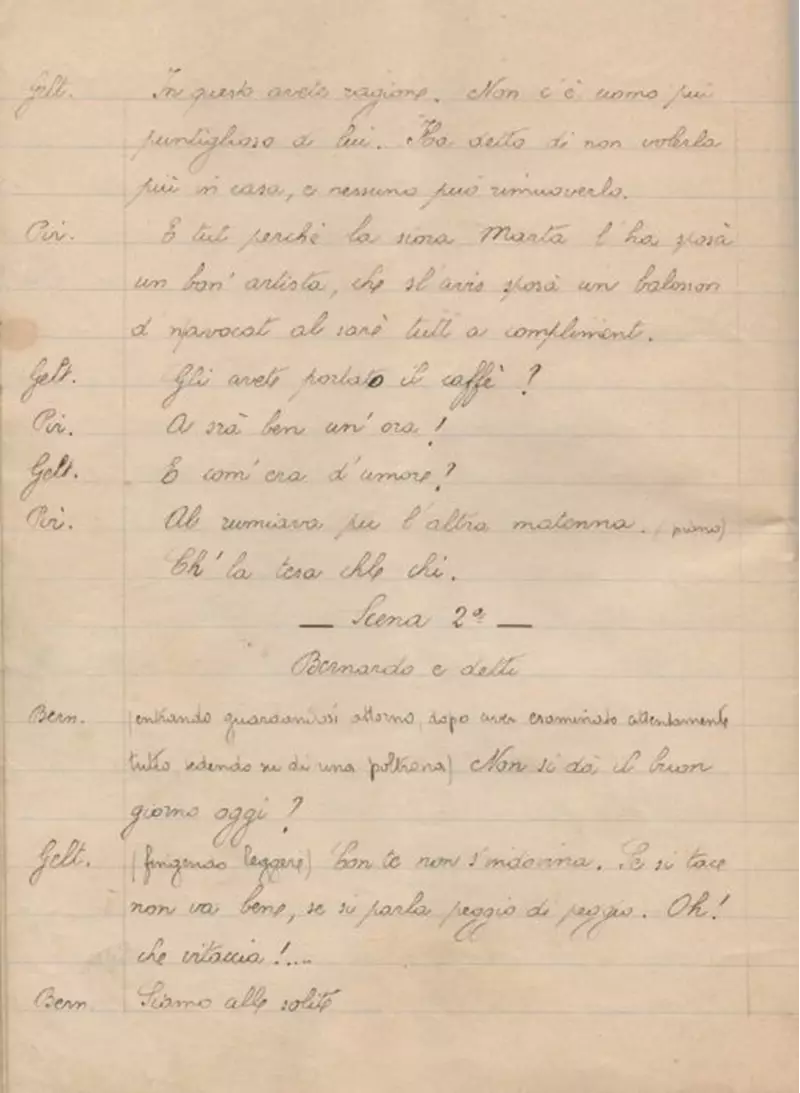 Gelt. In questo avete ragione. Non c'è uomo più
puntiglioso di lui. Ha detto di non volerla
più in casa, e nessuno può rimuoverlo.
Pir. E tut perchè la siora Marta l'ha sposà
un bon' artista, che sl'avis sposà un balosson
d n'avocat al sarè tutt a compliment.
Gelt. Gli avete portato il caffè?
Pir. A srà ben un' ora!
Gelt. E com' era d'umore?
Pir. Al rumiava pu l'altra matenna. (piano)
Ch' la tesa chle chi.
— Scena 2ª —
Bernardo e detti
Bern. (entrando guardandosi attorno, dopo aver esaminato attentamente
tutto sedendo su di una poltrona) Non si dà il buon
giorno oggi?
Gelt. (fingendo leggere) Con te non s'indovina. Se si tace
non va bene, se si parla peggio di peggio. Oh!
che vitaccia!....
Bern. Siamo alle solite